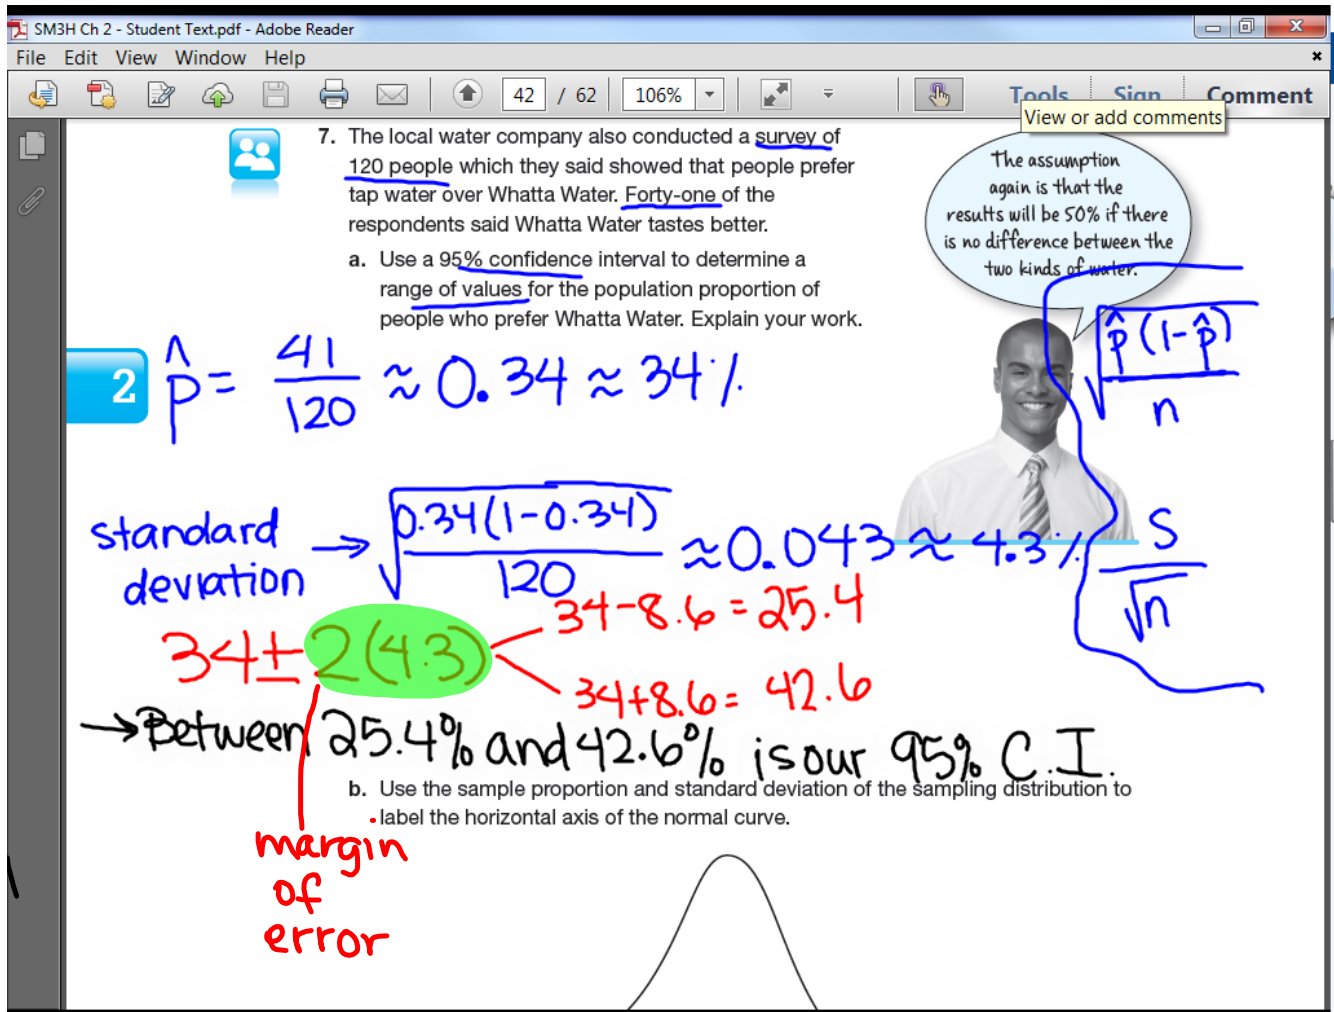 SM3H Ch 2 - Student Text.pdf - Adobe Reader
File Edit View Window Help
42 / 62 106% Tools Sign Comment
View or add comments
7. The local water company also conducted a survey of
120 people which they said showed that people prefer
tap water over Whatta Water. Forty-one of the
respondents said Whatta Water tastes better.
a. Use a 95% confidence interval to determine a
range of values for the population proportion of
people who prefer Whatta Water. Explain your work.
The assumption
again is that the
results will be 50% if there
is no difference between the
two kinds of water.
2
p̂ = 41/120 ≈ 0.34 ≈ 34%
√(p̂(1-p̂)/n)
standard deviation → √(0.34(1-0.34)/120) ≈ 0.043 ≈ 4.3%
S/√n
34 ± 2(4.3)
34-8.6 = 25.4
34+8.6 = 42.6
→ Between 25.4% and 42.6% is our 95% C.I.
b. Use the sample proportion and standard deviation of the sampling distribution to
label the horizontal axis of the normal curve.
margin
of
error